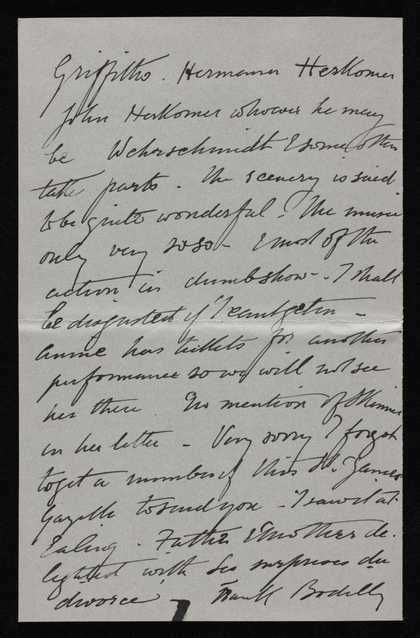 Griffiths. Hermann Herkomer
John Herkomer whoever he may
be Wehrschmidt & some other
take parts - The scenery is said
to be quite wonderful! The music
only very so so - & most of the
action in dumbshow - I shall
be disgusted if I cant get in -
Annie has tickets for another
performance so we will not see
her there No mention of Skinner
in her letter - Very sorry I forgot
to get a number of this St. James
Gazette to send you - I saw it at
Ealing. Father & Mother de-
lighted with Les surprises du
divorce - Frank Bodilly